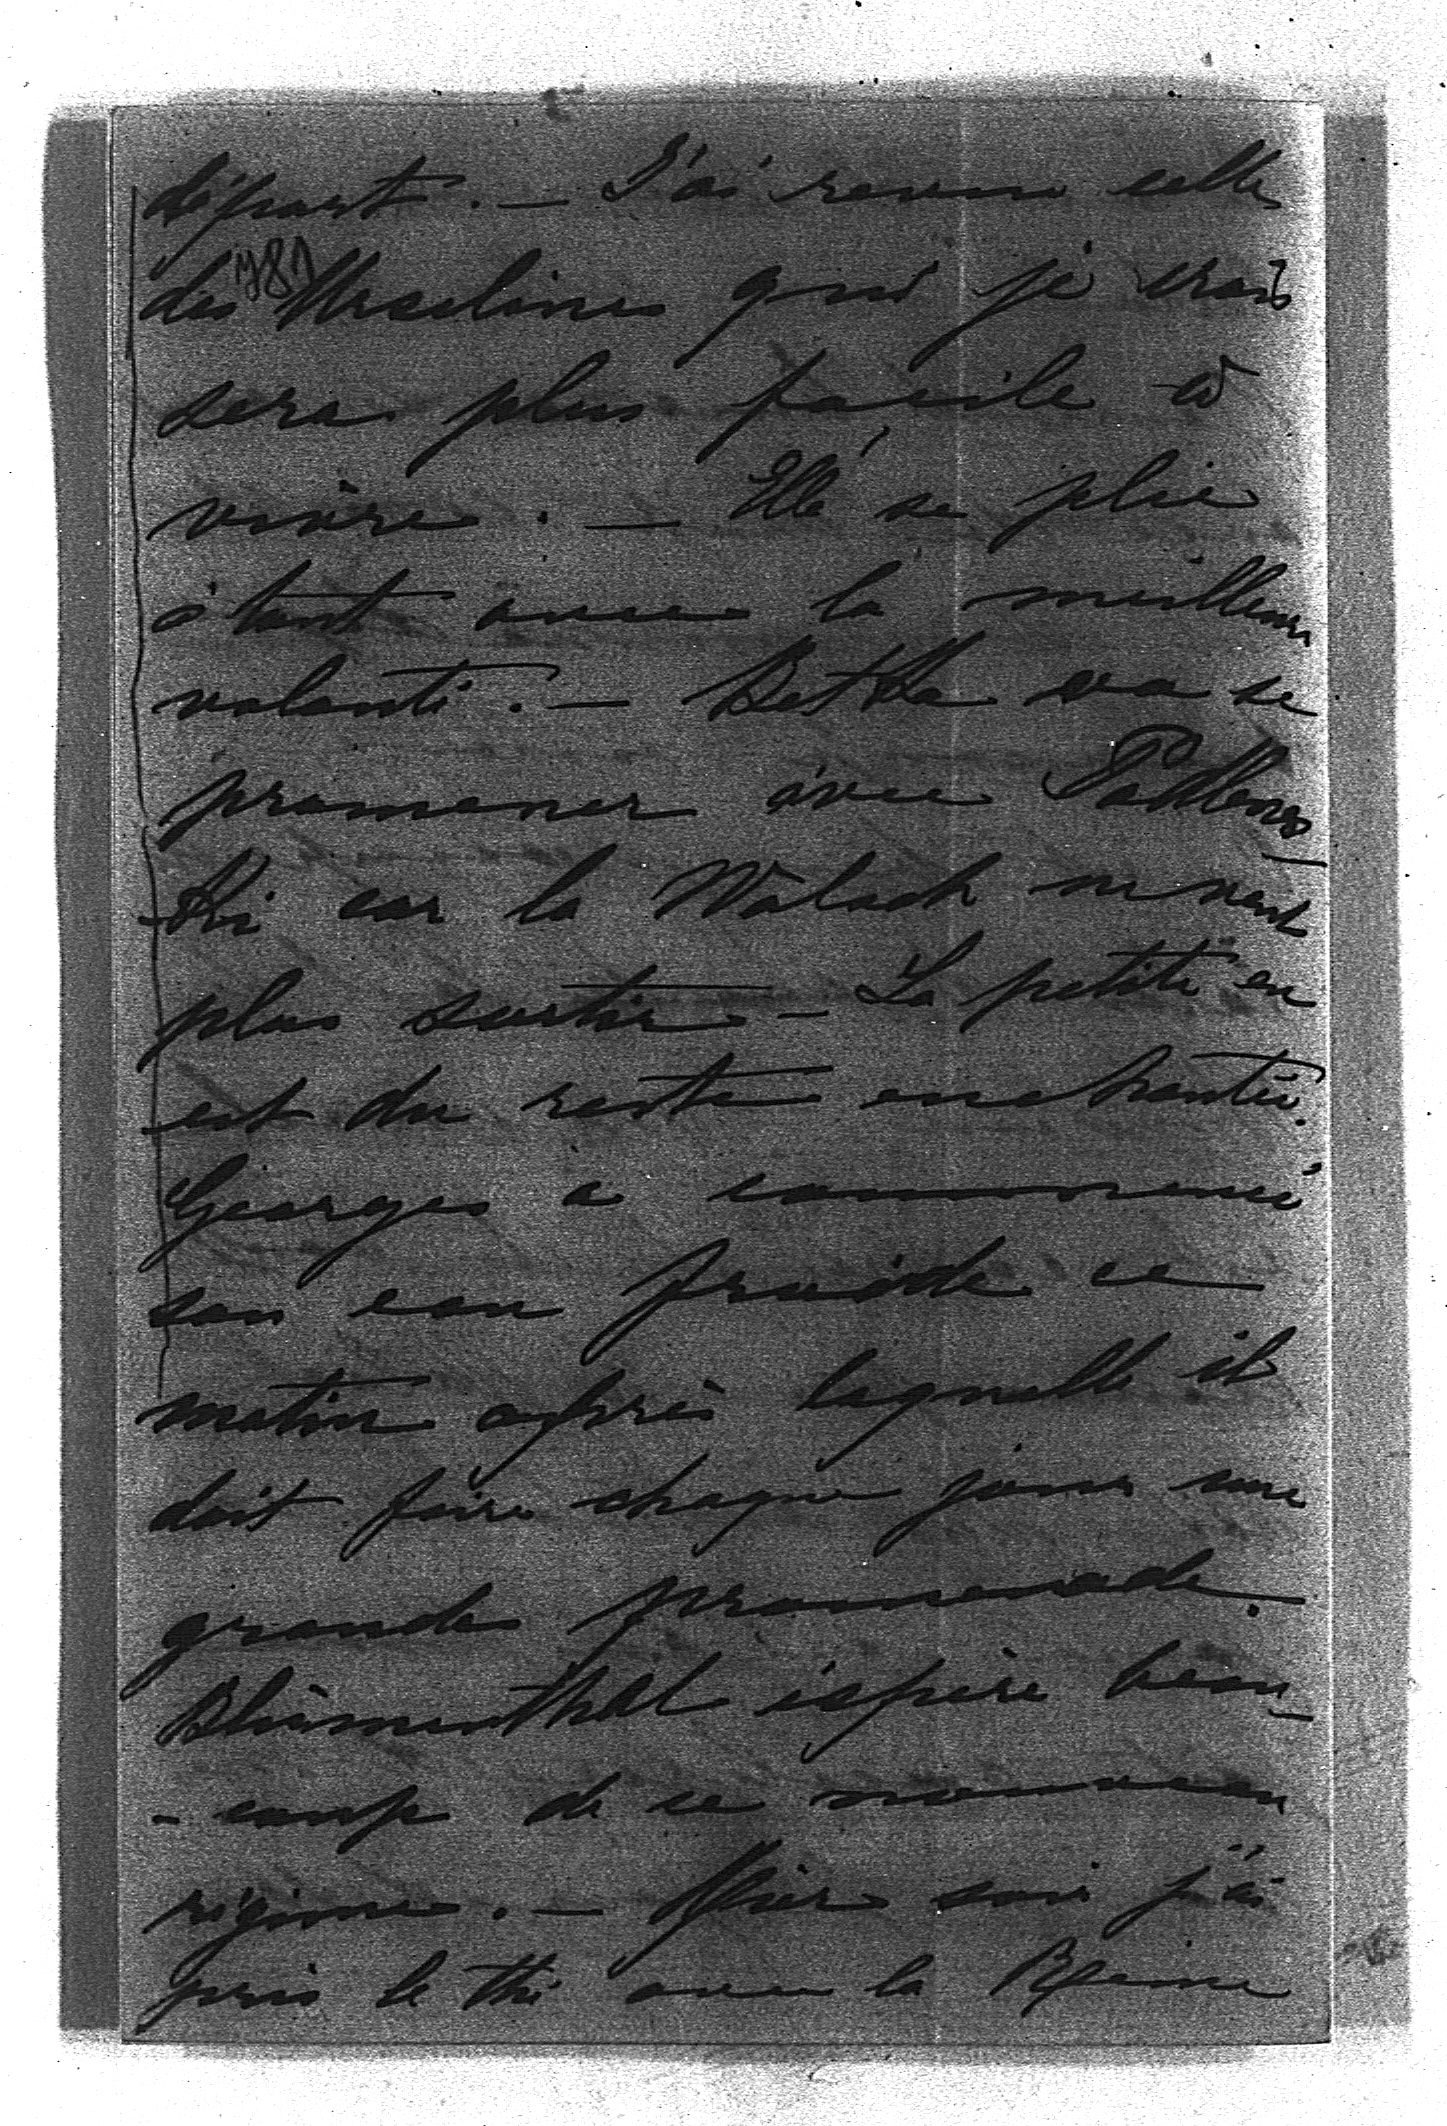 départ. — J'ai revu celle
des Urselines qui je crois
sera plus facile à
vivre. — Elle se plie
à tout avec la meilleure
volonté. — Bertha va se
promener avec
ki car la Walach ne veut
plus sortir — La petite en
est du reste enchantée.
Georges a commencé
son eau froide ce
matin après laquelle il
doit faire chaque jour une
grande promenade.
Blumenthal espère beau-
-coup de ce nouveau
régime. — Hier soir j'ai
pris le thé avec la Reine